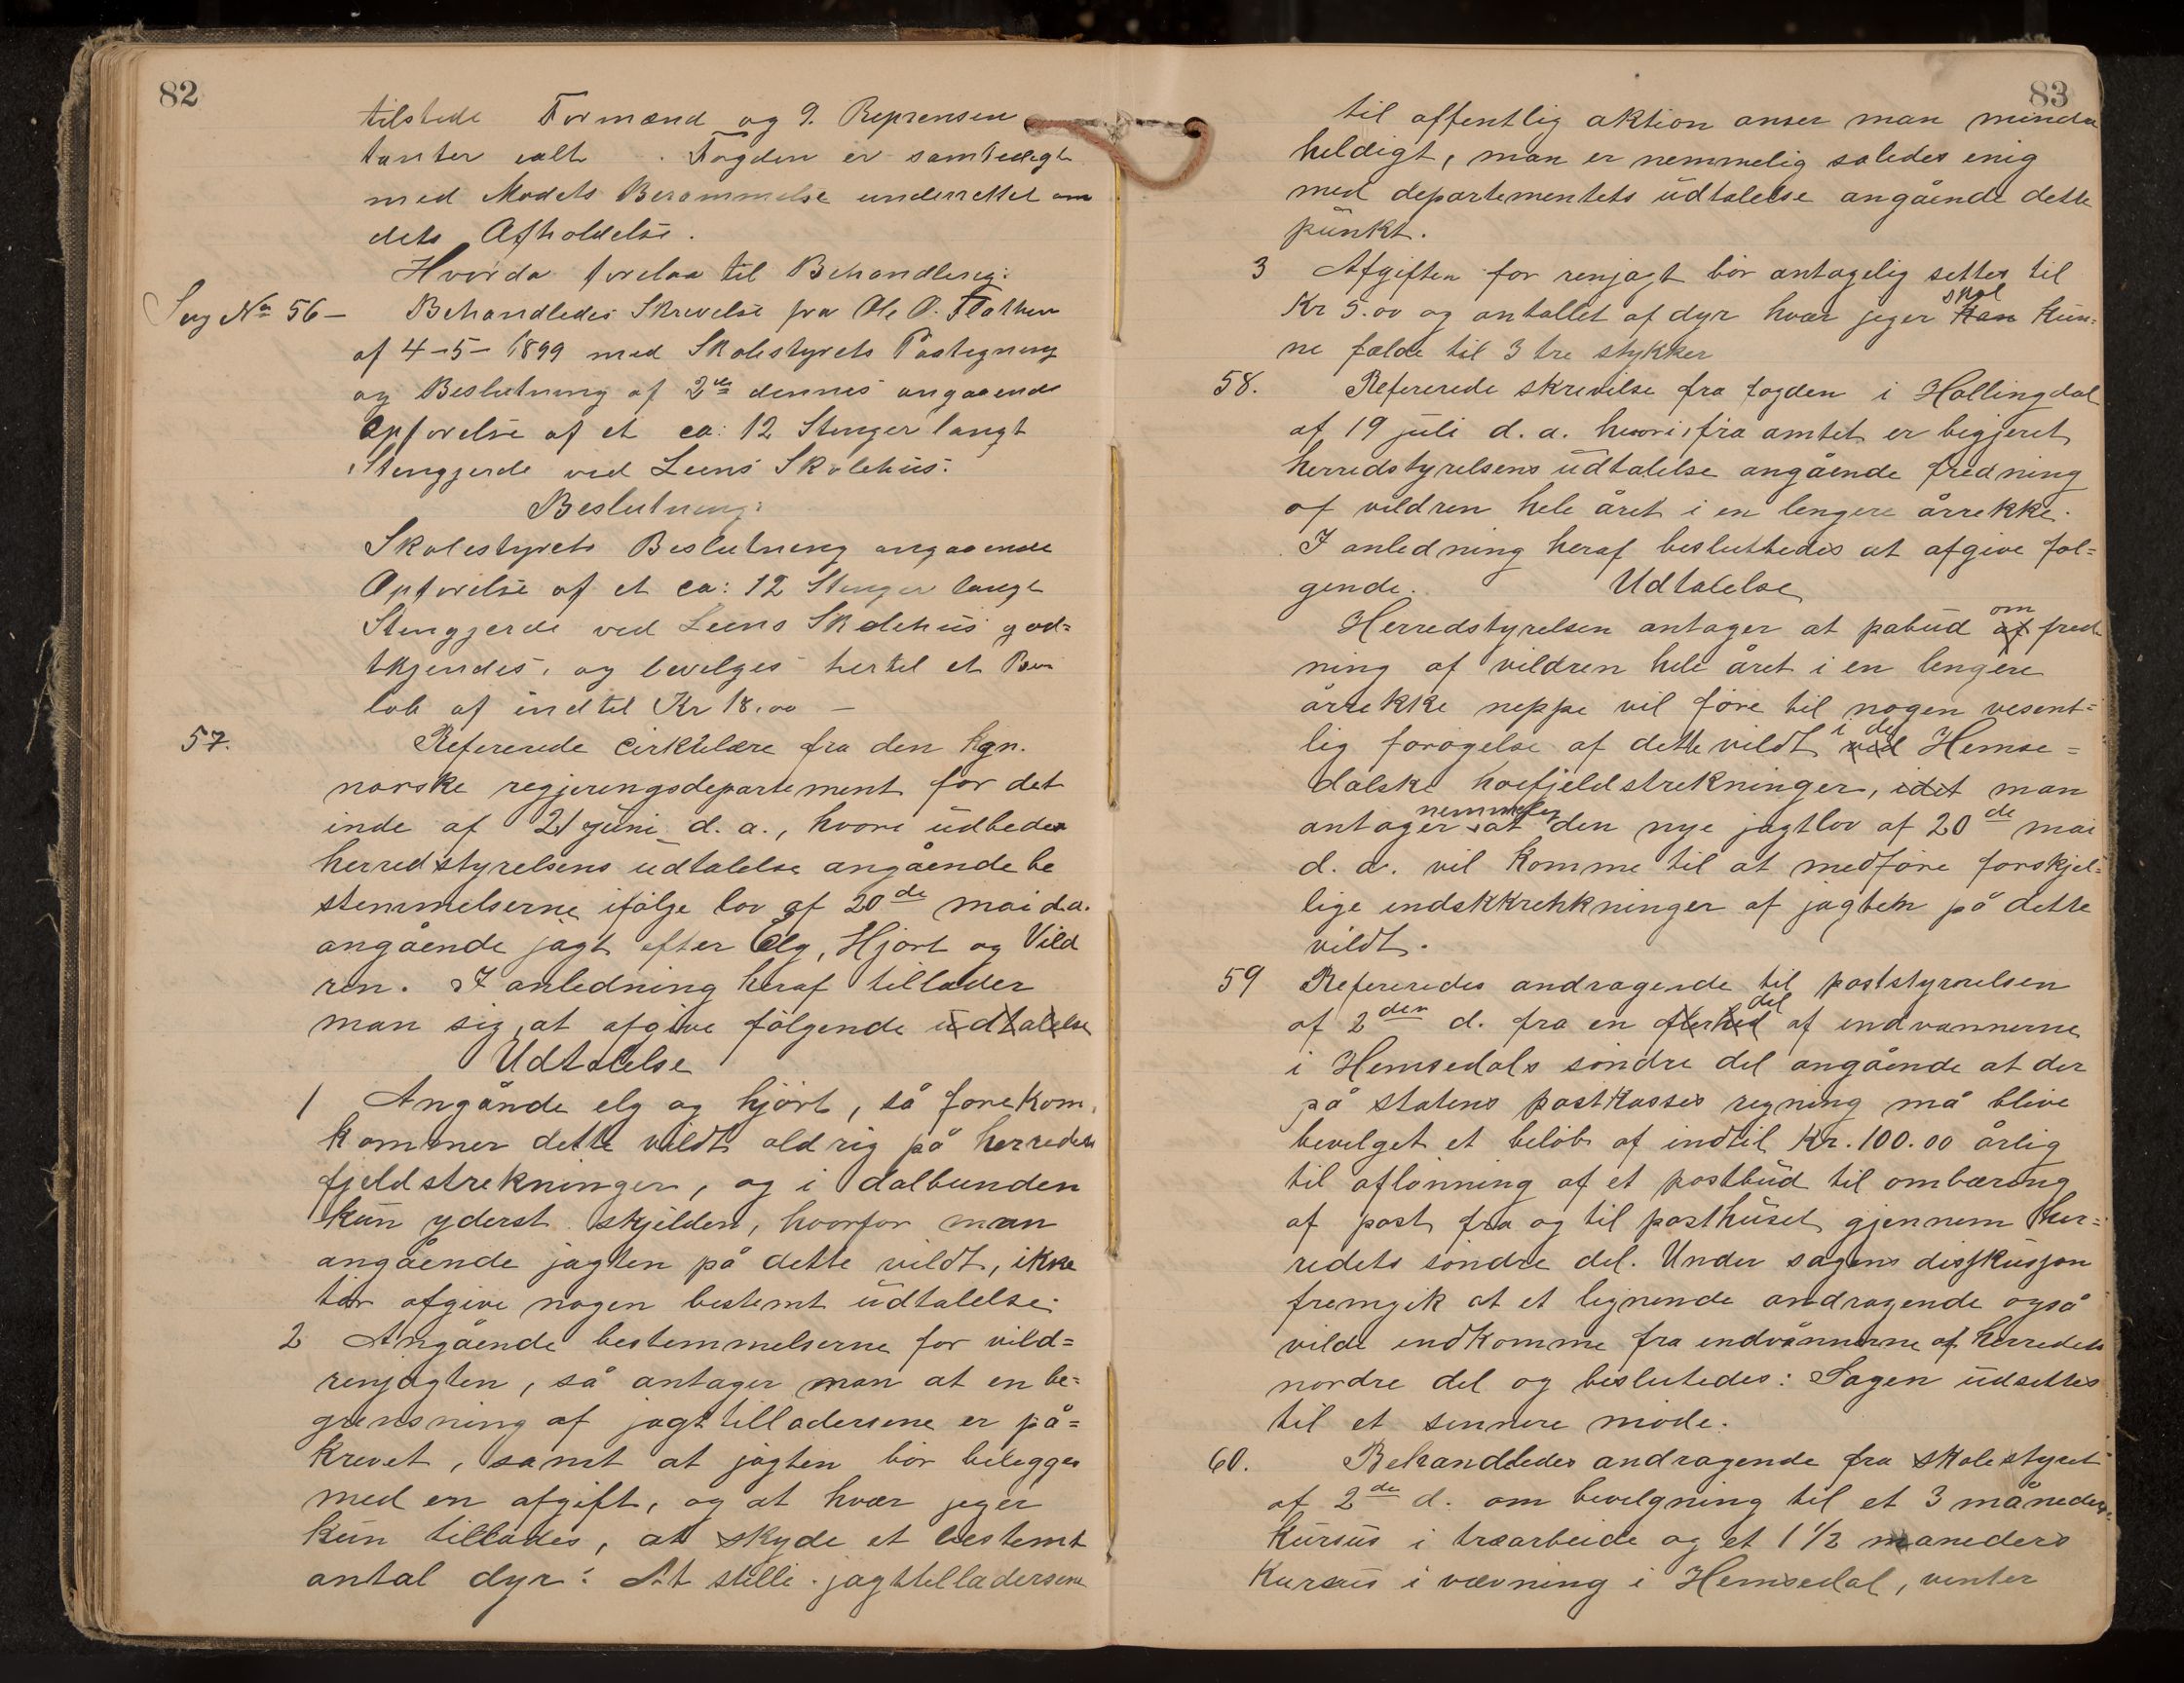 82
tilstede Formænd og 9. Reprensen
tanter ialt. Fogden er samtidigt
med Modets Berammelse underrettet om
dets Afholdelse.
Hvorda forelaa til Behandling:
Sag No 56 – Behandledes Skrivelse fra Ole O. Flathen
af 4-5-1899 med Skolestyrets Paategning
og Beslutning af 2den dennes angaaende
Opforelse af et ca: 12 Stenger langt
Stenggjerde ved Leens Skolehus.
Beslutning:
Skolestyrets Beslutning angaaende
Opforelse af et ca: 12 Stenger langt
Stenggjerde ved Leens Skolehus god=
tkjendes, og bevilges hertil et Be
lob af indtil Kr 18.00 –
57. Refererede cirkulære fra den kgn.
norske regjeringsdepartement for det
inde af 21 juni d. a., hvori udbedes
herredstyrelsens udtalelse angående be
stemmelserne ifölge lov af 20de mai d.a.
angående jagt efter Elg, Hjort og Vild
ren. I anledning heraf tillader
man sig, at afgive fölgende udtalelse
Udtalelse
1 Angånde elg og hjort, så forekom,
kommer dette vildt aldrig på herredets
fjeldstrekninger, og i dalbunden
kun yderst skjelden, hvorfor man
angående jagten på dette vildt, ikke
tör afgive nogen bestemt udtalelse.
2 Angående bestemmelserne for vild=
renjagten, så antager man at en be=
grensning af jagttilladersene er på=
krevet, samt at jagten bör belegges
med en afgift, og at hvær jeger
kun tillades, at skyde et bestemt
antal dyr: At stille jagttilladersene
83
til offentlig aktion anser man mindre
heldigt, man er nemmelig saledes enig
med departementets udtalelse angående dette
punkt.
3 Afgiften for renjagt bör antagelig settes til
Kr 5.00 og antallet af dyr hvær jeger kan skal kun=
ne fælde til 3 tre stykker
58. Refererede skrivelse fra fogden i Hallingdal
af 19 juli d. a. hvori, fra amtet er begjeret
herredstyrelsens udtalelse angående fredning
af vildren hele året i en lengere årrekke.
I anledning heraf besluttedes at afgive föl=
gende. Udtalelse
Herredstyrelsen antager at pabud af om fred
ning af vildren hele året i en lengere
årrekke neppe vil före til nogen vesent=
lig forögelse af dette vildt ved i de Hemse=
dalske höefjeldstrekninger, idet man
antager nemmelig at den nye jagtlov af 20de mai
d. a. vil komme til at medföre forskjel=
lige indskkrehkninger af jagten på dette
vildt.
59 Refereredes andragende til poststyrrelsen
af 2den d. fra en flerhed del af indvannerne
i Hemsedals söndre del angående at der
på statens postkasses regning må blive
bevilget et belöb af indtil Kr. 100.00 årlig
til aflönning af et postbud til ombæring
af post fra og til posthuset gjennem her=
redets söndre del. Under sagens disskusjon
fremgik at et lignende andragende også
vilde indkomme fra indvånnerne af herredets
nordre del og beslutedes: Sagen udsettes
til et sennere möde.
60. Behandledes andragende fra skolestyret
af 2de d. om bevilgning til et 3 måneders
kursus i træarbeide og et 1 1/2 maneders
kursus i vævning i Hemsedal, vinter